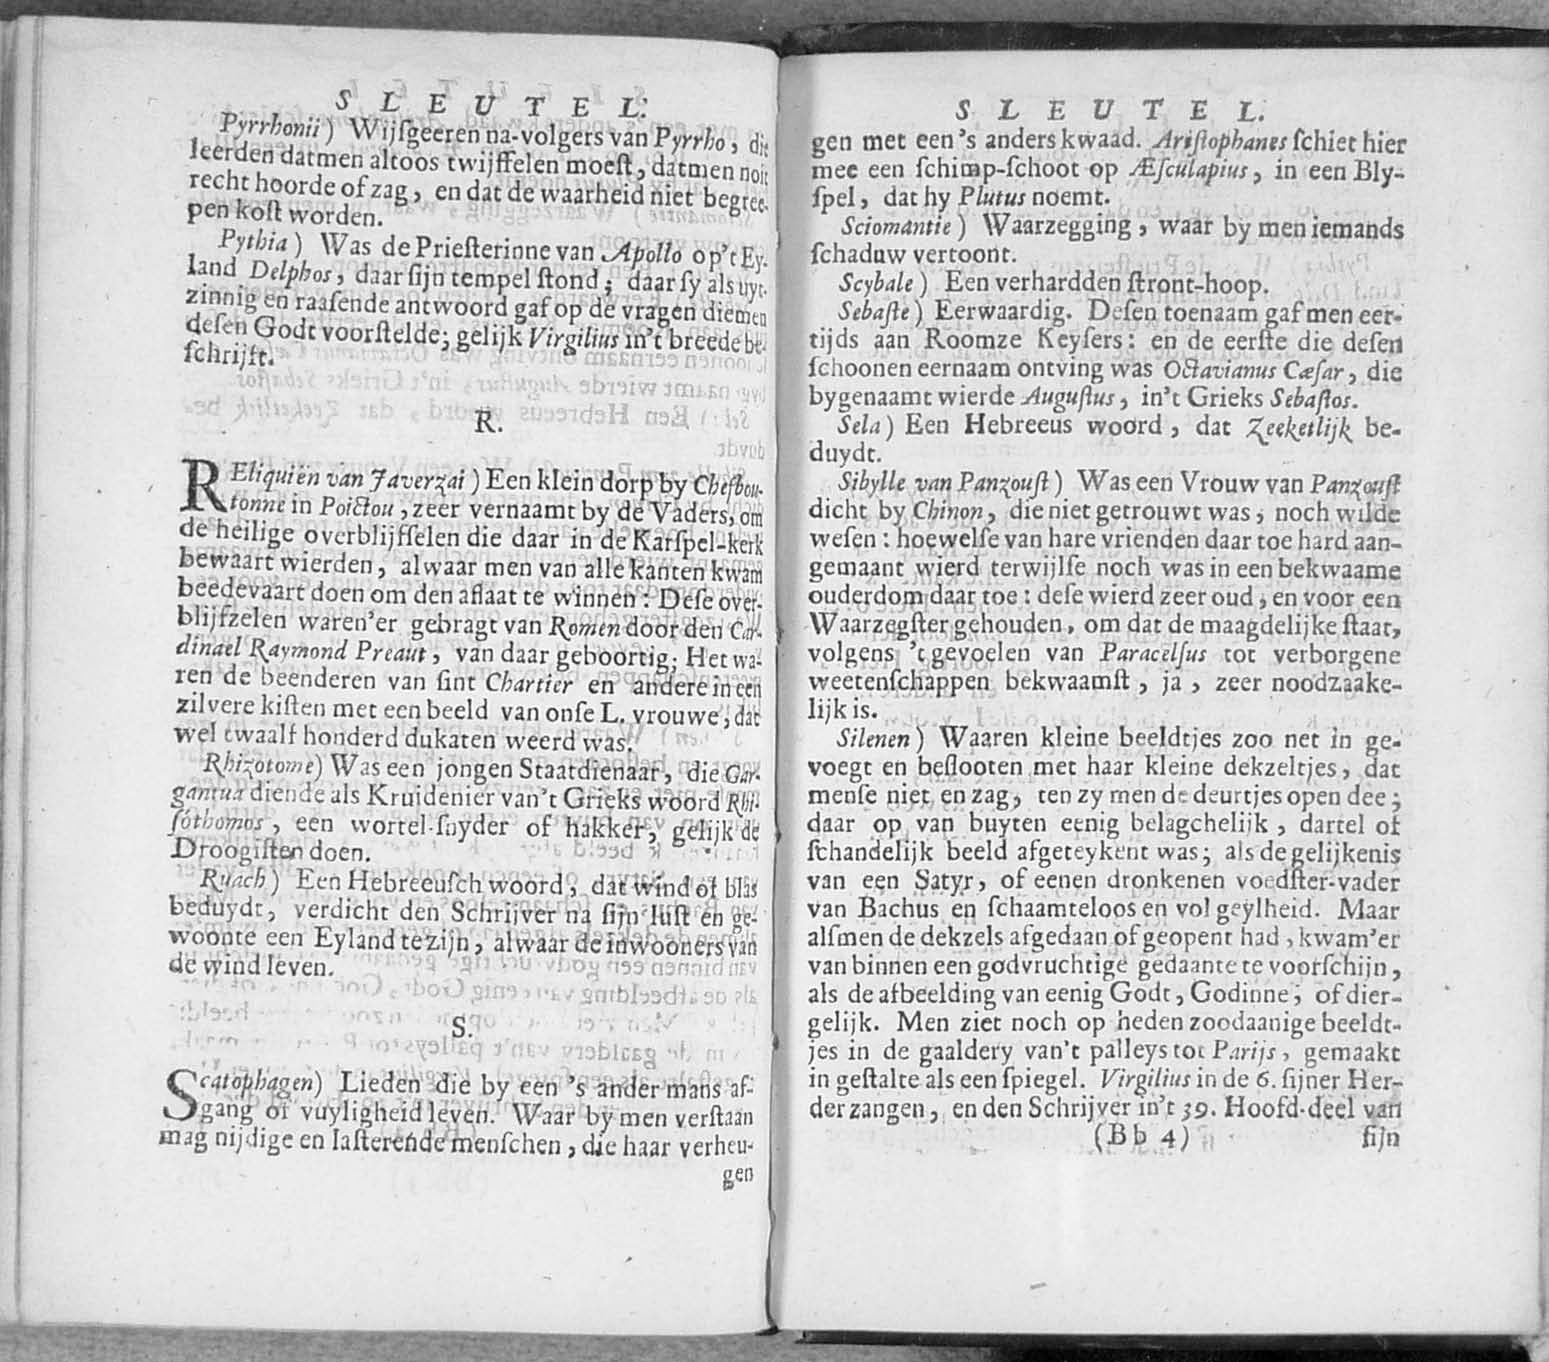 S L E U T E L.
Pyrrhonii) Wijſgeeren na-volgers van Pyrrho, die
leerden datmen altoos twijffelen moeſt, datmen noit
recht hoorde of zag, en dat de waarheid niet begree-
pen koſt worden.
Pythia) Was de Prieſterinne van Apollo op't Ey-
land Delphos, daar ſijn tempel ſtond; daar ſy als uyt-
zinnig en raaſende antwoord gaf op de vragen diemen
deſen Godt voorſtelde; gelijk Virgilius in't breede be-
ſchrijft.
R.
REliquiën van Javerzai) Een klein dorp by Chesbou-
tonne in Poictou, zeer vernaamt by de Vaders, om
de heilige overblijfſelen die daar in de Karſpel-kerk
bewaart wierden, alwaar men van alle kanten kwam
beedevaart doen om den aflaat te winnen: Deſe over-
blijfzelen waren'er gebragt van Romen door den Car-
dinael Raymond Preaut, van daar geboortig; Het wa-
ren de beenderen van ſint Chartier en andere in een
zilvere kiſten met een beeld van onſe L. vrouwe, dat
wel twaalf honderd dukaten weerd was.
Rhizotome) Was een jongen Staatdienaar, die Gar-
gantua diende als Kruidenier van't Grieks woord Rhi-
ſothomos, een wortel-ſnyder of hakker, gelijk de
Droogiſten doen.
Ruach) Een Hebreeuſch woord, dat wind of blas
beduydt, verdicht den Schrijver na ſijn luſt en ge-
woonte een Eyland te zijn, alwaar de inwooners van
de wind leven.
S.
SCatophagen) Lieden die by een 's ander mans af-
gang of vuyligheid leven. Waar by men verſtaan
mag nijdige en laſterende menſchen, die haar verheu-
gen
S L E U T E L.
gen met een 's anders kwaad. Ariſtophanes ſchiet hier
mee een ſchimp-ſchoot op Æſculapius, in een Bly-
ſpel, dat hy Plutus noemt.
Sciomantie) Waarzegging, waar by men iemands
ſchaduw vertoont.
Scybale) Een verhardden ſtront-hoop.
Sebaſte) Eerwaardig. Deſen toenaam gaf men eer-
tijds aan Roomze Keyſers: en de eerſte die deſen
ſchoonen eernaam ontving was Octavianus Cæſar, die
bygenaamt wierde Auguſtus, in't Grieks Sebaſtos.
Sela) Een Hebreeus woord, dat Zeeketlijk be-
duydt.
Sibylle van Panzouſt) Was een Vrouw van Panzouſt
dicht by Chinon, die niet getrouwt was, noch wilde
weſen: hoewelſe van hare vrienden daar toe hard aan-
gemaant wierd terwijlſe noch was in een bekwaame
ouderdom daar toe: deſe wierd zeer oud, en voor een
Waarzegſter gehouden, om dat de maagdelijke ſtaat,
volgens 't gevoelen van Paracelſus tot verborgene
weetenſchappen bekwaamſt, ja, zeer noodzaake-
lijk is.
Silenen) Waaren kleine beeldtjes zoo net in ge-
voegt en beſlooten met haar kleine dekzeltjes, dat
menſe niet en zag, ten zy men de deurtjes open dee;
daar op van buyten eenig belagchelijk, dartel of
ſchandelijk beeld afgeteykent was; als de gelijkenis
van een Satyr, of eenen dronkenen voedſter-vader
van Bachus en ſchaamteloos en vol geylheid. Maar
alſmen de dekzels afgedaan of geopent had, kwam'er
van binnen een godvruchtige gedaante te voorſchijn,
als de afbeelding van eenig Godt, Godinne, of dier-
gelijk. Men ziet noch op heden zoodaanige beeldt-
jes in de gaaldery van't palleys tot Parijs, gemaakt
in geſtalte als een ſpiegel. Virgilius in de 6. ſijner Her-
derzangen, en den Schrijver in't 39. Hoofd-deel van
(Bb 4) ſijn